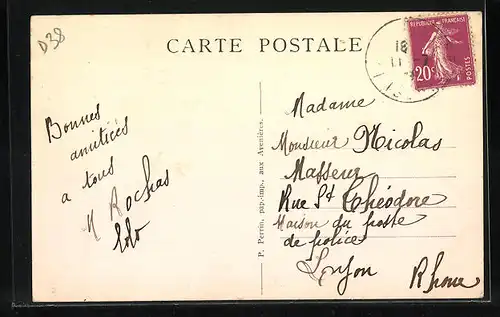 D38
CARTE POSTALE
RÉPUBLIQUE FRANÇAISE
POSTES
20c
18
11
Bonnes
amitiées
a tous
M Rochas
Lolo
P. Perrin, pap.-imp., aux Avenières.
Madame
Monsieur Nicolas
Masseur
Rue St Théodore
Maison du poste
de police
Rhone